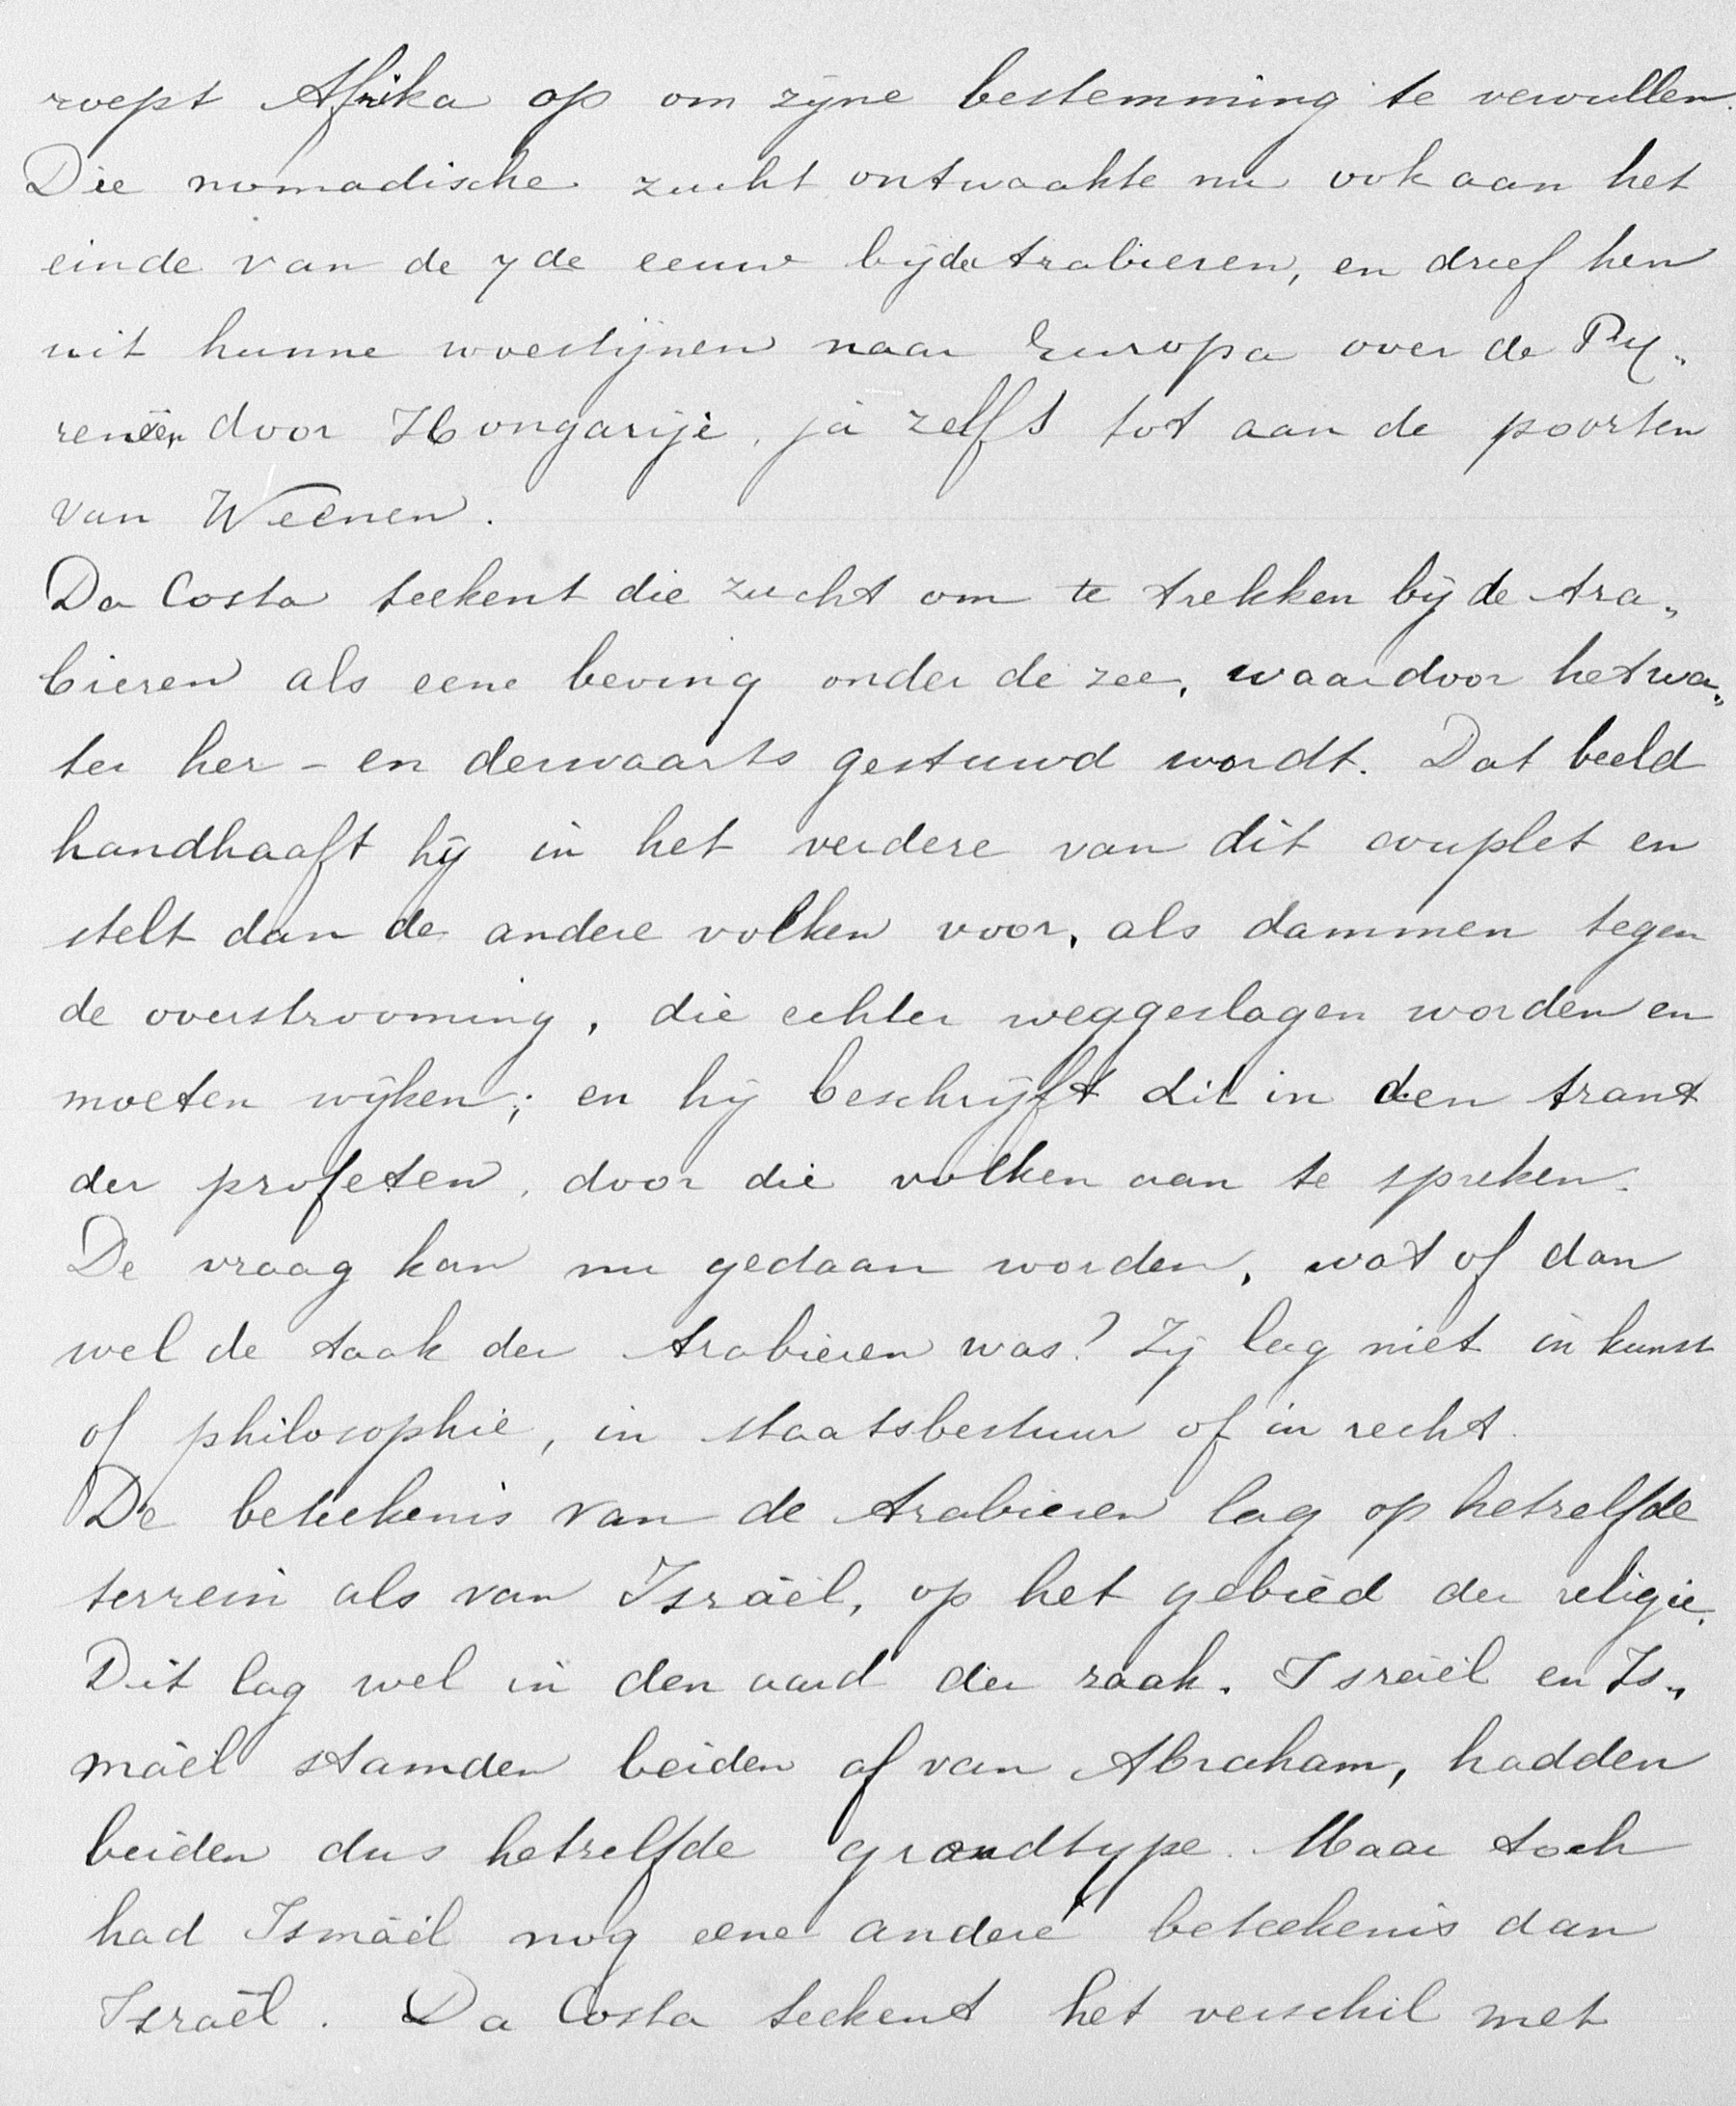 roept Afrika op om zijne bestemming te vervullen.
Die nomadische zucht ontwaakte nu ook aan het
einde van de 7de eeuw bij de Arabieren, en dreef hen
uit hunne woestijnen naar Europa over de Py„
reneën door Hongarije, ja zelfs tot aan de poorten
van Weenen.
Da Costa teekent die zucht om te trekken bij de Ara„
bieren als eene beving onder de zee, waardoor het wa„
ter her- en derwaarts gestuwd wordt. Dat beeld
handhaaft hij in het verdere van dit couplet en
stelt dan de andere volken voor, als dammen tegen
de overstrooming, die echter weggeslagen worden en
moeten wijken; en hij beschrijft dit in den trant
der profeten, door die volken aan te spreken.
De vraag kan nu gedaan worden, wat of dan
wel de taak der Arabieren was? Zij lag niet in kunst
of philosophie, in staatsbestuur of in recht.
De beteekenis van de Arabieren lag op hetzelfde
terrein als van Israël, op het gebied der religie.
Dit lag wel in den aard der zaak. Israël en Is„
maël stamden beiden af van Abraham, hadden
beiden dus hetzelfde grondtype. Maar toch
had Ismaël nog eene andere beteekenis dan
Israël. Da Costa teekent het verschil met